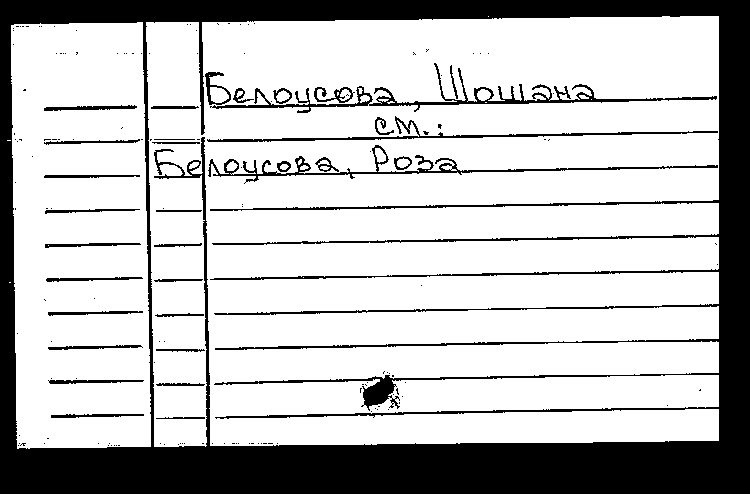 Белоусова, Шошана
см.:
Белоусова, Роза